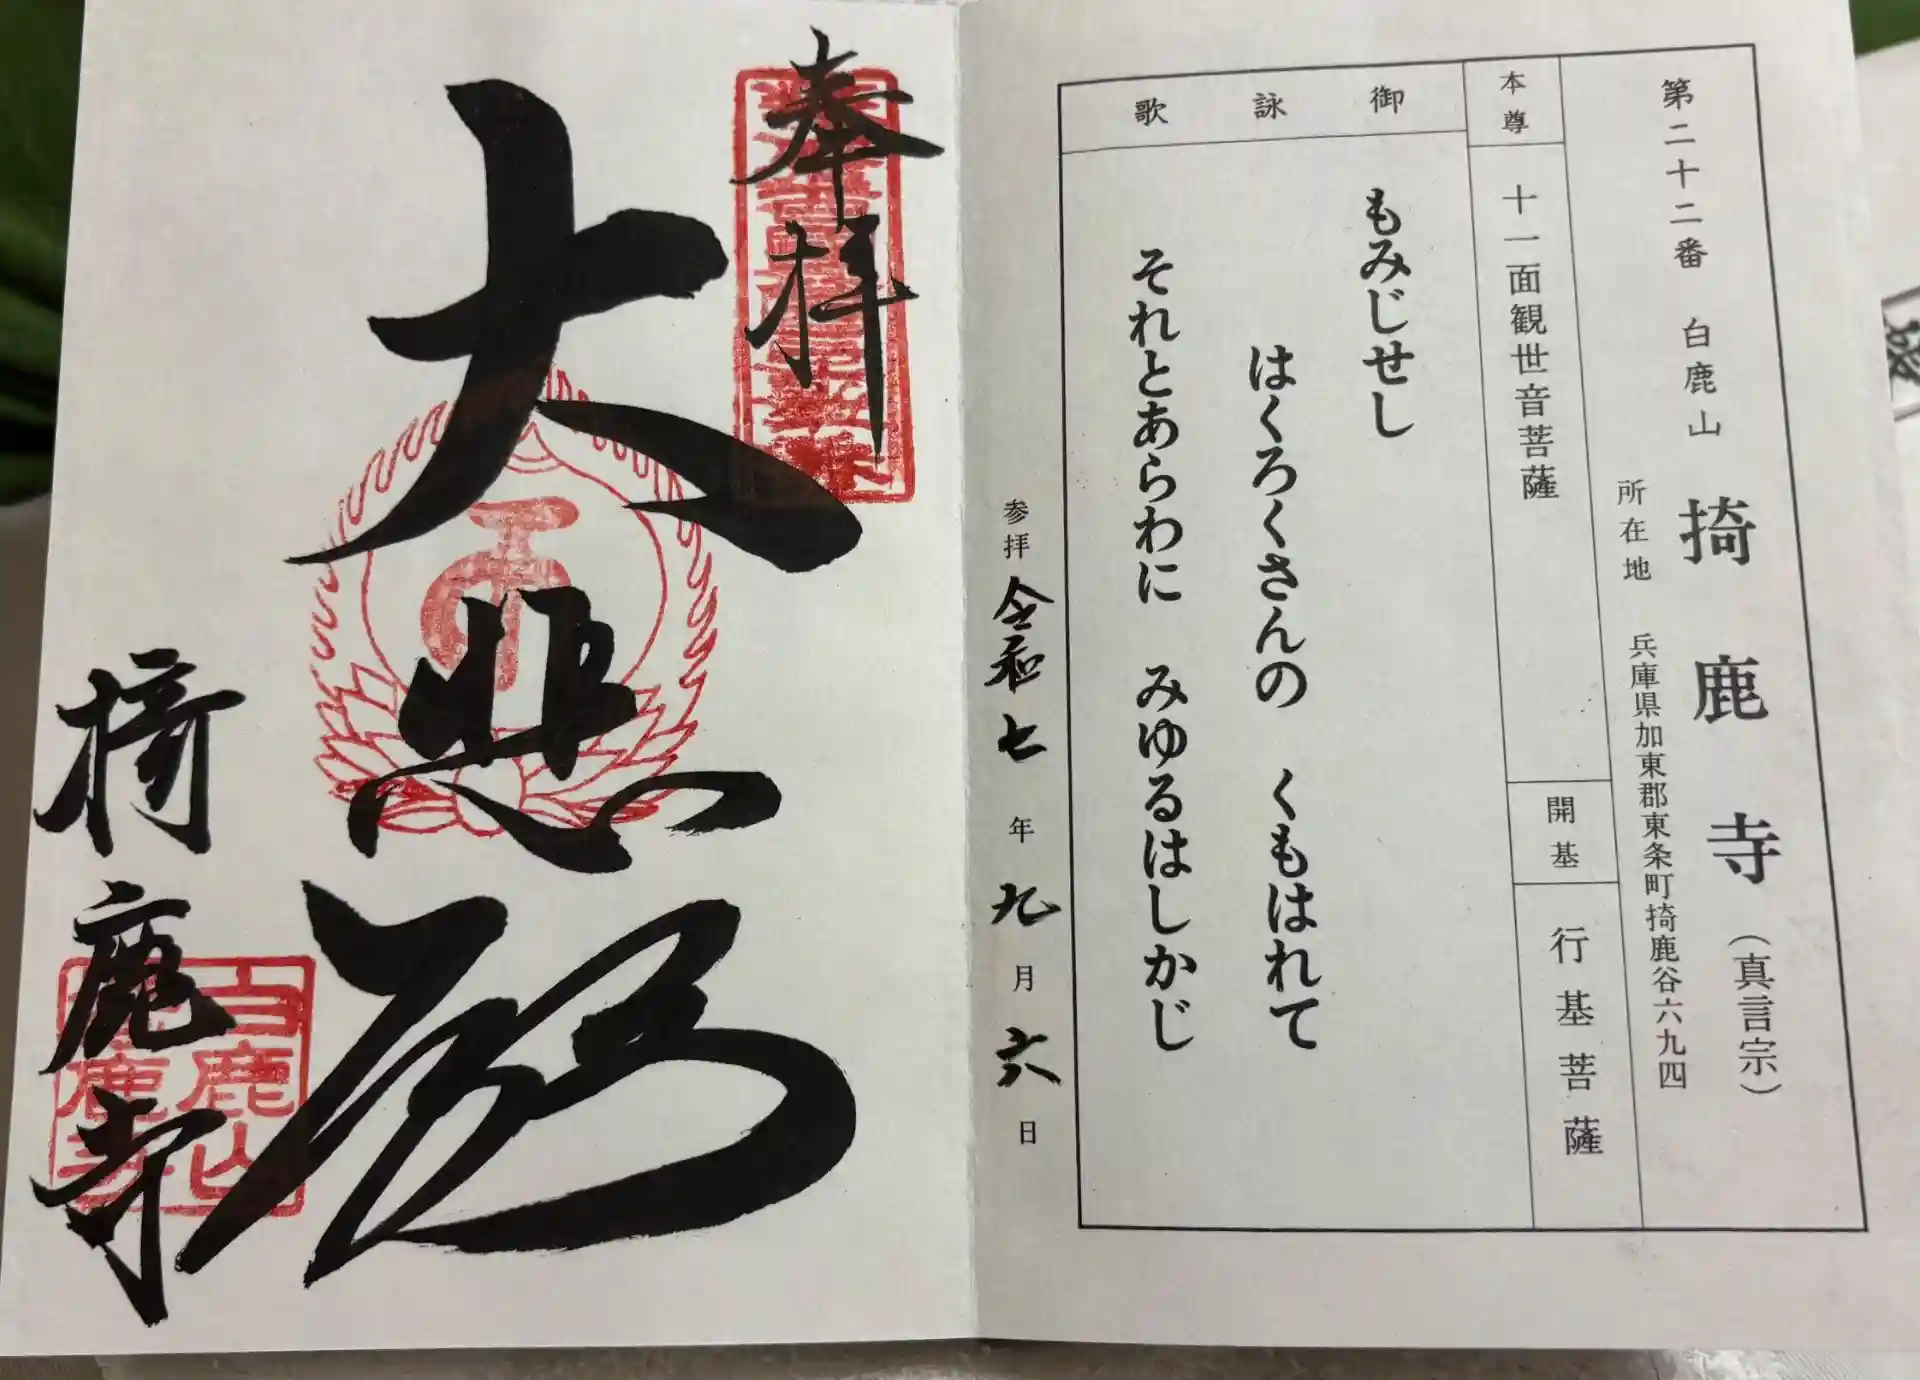 第二十二番 白鹿山 掎鹿寺（真言宗）
所在地 兵庫県加東郡東条町掎鹿谷六九四
本尊 十一面観世音菩薩
開基 行基菩薩
御詠歌
もみじせし
はくろくさんの くもはれて
それとあらわに みゆるはしかじ
参拝 令和七年九月六日
奉拝
大悲殿
掎鹿寺
白鹿山
掎鹿寺